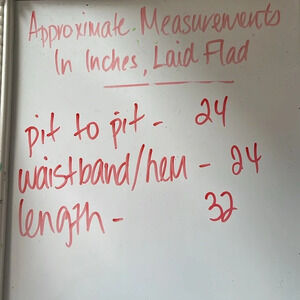 Approximate Measurements
In Inches, Laid Flad
pit to pit - 24
waistband/hem - 24
length - 32